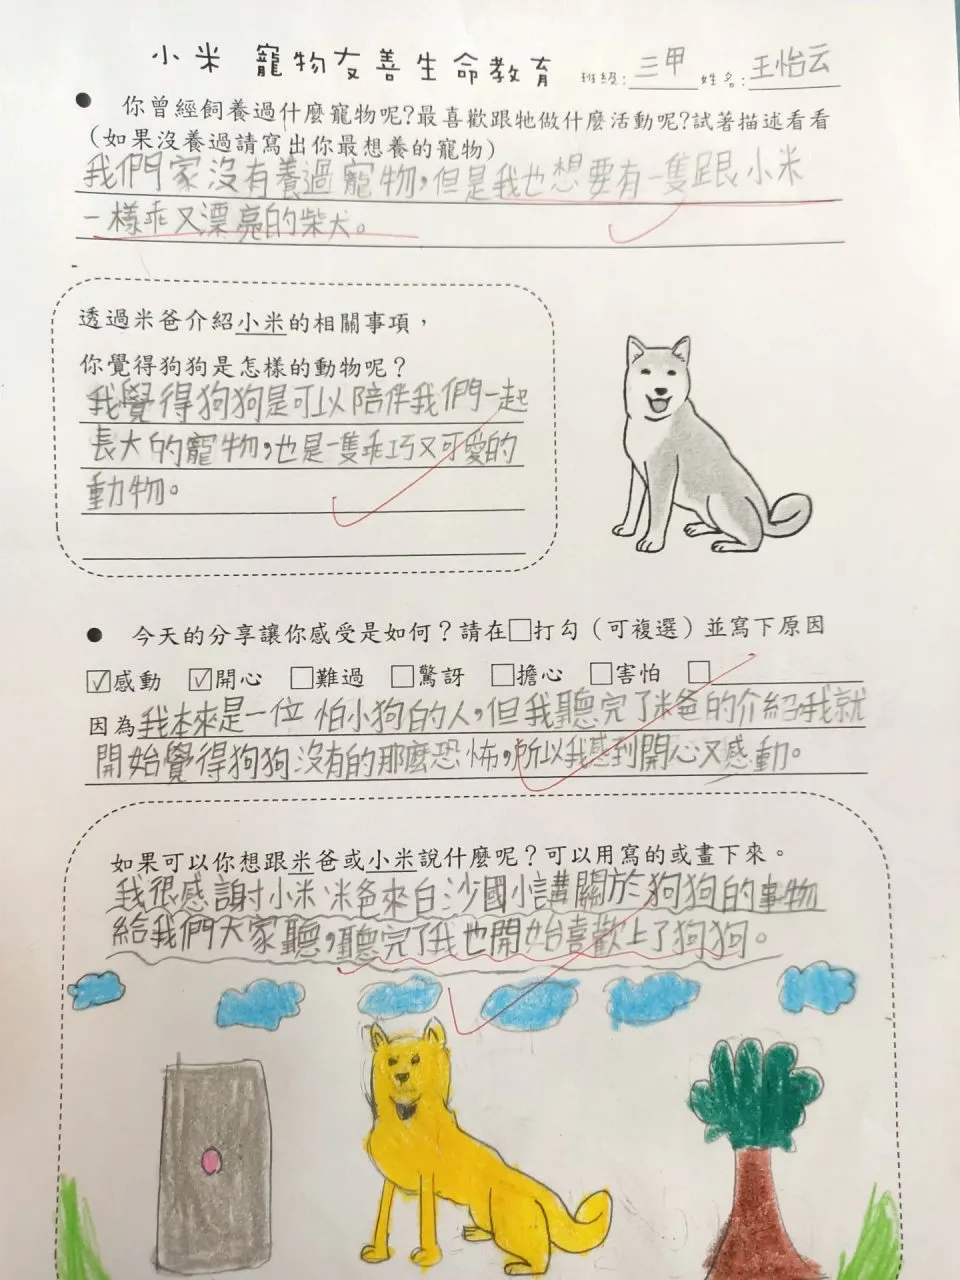 小米 寵物友善生命教育 班級:三甲 姓名:王怡云
● 你曾經飼養過什麼寵物呢?最喜歡跟牠做什麼活動呢?試著描述看看
(如果沒養過請寫出你最想養的寵物)
我們家沒有養過寵物,但是我也想要有一隻跟小米
一樣乖又漂亮的柴犬。
透過米爸介紹小米的相關事項,
你覺得狗狗是怎樣的動物呢?
我覺得狗狗是可以陪伴我們一起
長大的寵物,也是一隻乖巧又可愛的
動物。
● 今天的分享讓你感受是如何?請在□打勾(可複選)並寫下原因
☑感動 ☑開心 □難過 □驚訝 □擔心 □害怕 □
因為我本來是一位怕小狗的人,但我聽完了米爸的介紹,我就
開始覺得狗狗沒有的那麼恐怖,所以我感到開心又感動。
如果可以你想跟米爸或小米說什麼呢?可以用寫的或畫下來。
我很感謝小米米爸來白沙國小講關於狗狗的事物
給我們大家聽,聽完了我也開始喜歡上了狗狗。